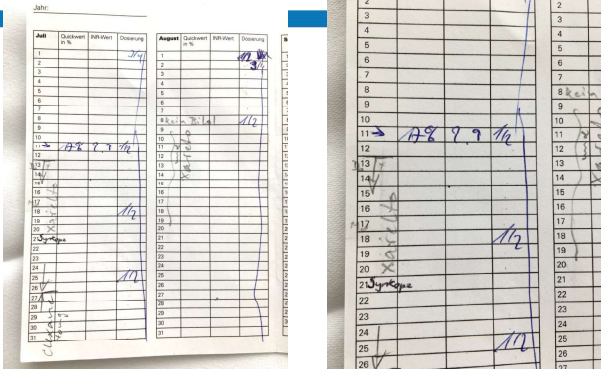 Jahr:
Juli Quickwert in % INR-Wert Dosierung
1 3/4
2
3
4
5
6
7
8
9
10
11 → 1/2
12
13
14
15
16
17
18 1/2
19
20
21 Synkope
22
23
24
25 1/2
26
27
28
29
30
31
Xarelto
Clexane
August Quickwert in % INR-Wert Dosierung
1 1/2
2 3/4
3
4
5
6
7
8 kein
9 1/2
10
11
12
13
14
15
16
17
18
19
20
21
22
23
24
25
26
27
28
29
30
31
Xarelto
2
3
4
5
6
7
8
9
10
11 → 1/2
12
13
14
15
16
17
18 1/2
19
20
21 Synkope
22
23
24
25 1/2
26
Xarelto
2
3
4
5
6
7
8 kein
9
10
11
12
13
14
15
16
17
18
19
20
21
22
23
24
25
26